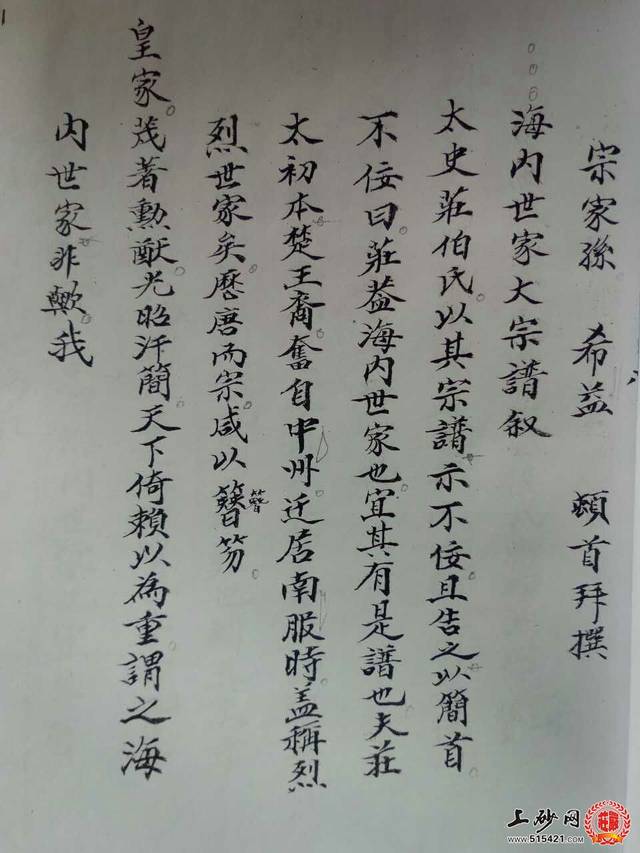 宗家孫 希益 頓首拜撰
海内世家大宗譜叙
太史莊伯氏以其宗譜示不佞且告之以簡首
不佞曰莊葢海内世家也宜其有是譜也夫莊
太初本楚王裔奮自中州迁居南服時盖稱烈
烈世家矣歷唐而宗咸以簪笏
簪
皇家茂著勲猷光昭汗簡天下倚賴以為重謂之海
内世家非歟我
上砂网
www.515421.com